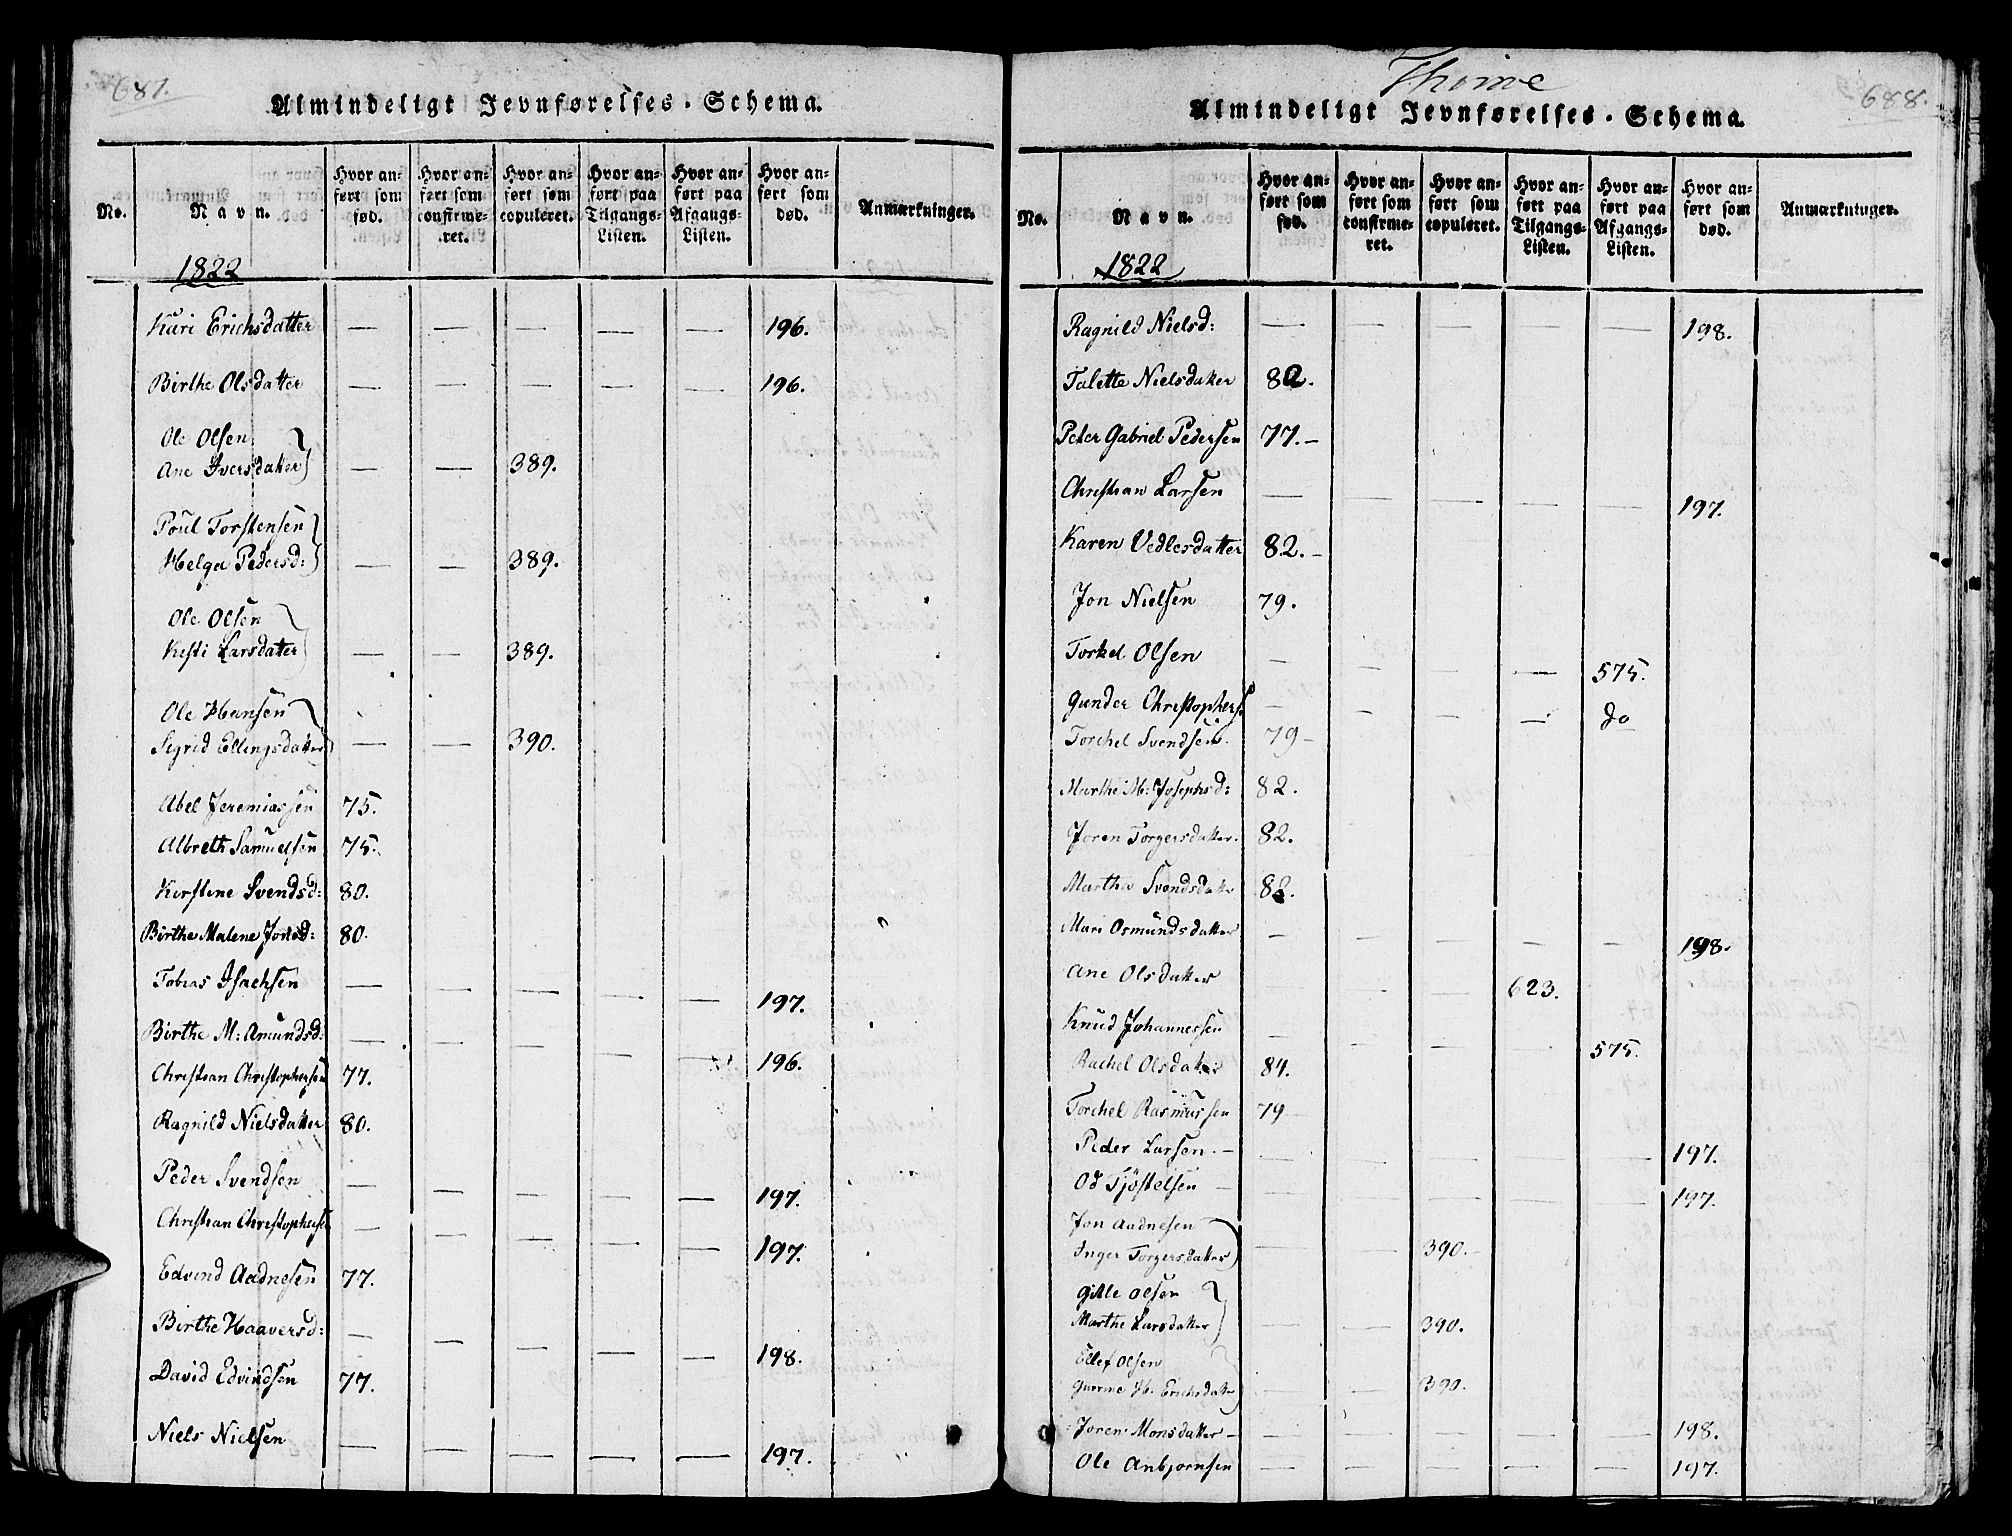 687.
Almindeligt Jevnførelses-Schema.
No.
Navn.
Hvor anført som fød.
Hvor anført som confirmeret.
Hvor anført som copuleret.
Hvor anført paa Tilgangs-Listen.
Hvor anført paa Afgangs-Listen.
Hvor anført som død.
Anmærkninger.
1822
Kari Erichsdatter — — — — — 196.
Birthe Olsdatter — — — — — 196.
Ole Olsen
Ane Iversdatter — — 389.
Poul Torstensen
Helga Pedersd: — — 389.
Ole Olsen
Kisti Larsdatter — — 389.
Ole Hansen
Sigrid Ellingsdatter — — 390.
Abel Jeremiassen 75.
Albreth Samuelsen 75.
Kirstene Svendsd: 80.
Birthe Malene Jonsd: 80.
Tobias Isachsen — — — — — 197.
Birthe M: Amundsd: — — — — — 196.
Christian Christophersen 77.
Ragnild Nielsdatter 80.
Peder Svendsen — — — — — 197.
Christian Christophersen — — — — — 197.
Edvind Aadnesen 77.
Birthe Haaversd: — — — — — 198.
David Edvindsen 77.
Niels Nielsen — — — — — 197.
Thime
688.
Almindeligt Jevnførelses-Schema.
No.
Navn.
Hvor anført som fød.
Hvor anført som confirmeret.
Hvor anført som copuleret.
Hvor anført paa Tilgangs-Listen.
Hvor anført paa Afgangs-Listen.
Hvor anført som død.
Anmærkninger.
1822
Ragnild Nielsd: — — — — — 198.
Talette Nielsdatter 82.
Peter Gabriel Pedersen 77. —
Christian Larsen — — — — — 197.
Karen Vedlesdatter 82. —
Jon Nielsen 79.
Torkel Olsen — — — — 575.
Gunder Christophers. — — — — do
Torchel Svendsen. 79 —
Marthe M: Josephsd: 82.
Joren Torgersdatter. 82.
Martha Svendsdatter 82.
Mari Osmundsdatter — — — — — 198.
Ane Olsdatter — — — 623.
Knud Johannessen — — — — 575.
Rachel Olsdatter 84.
Torchel Rasmussen 79
Peder Larsen. — — — — — — 197.
Od Tjöstelsen — — — — — — 197.
Jon Aadnesen
Inger Torgersdatter — — 390. —
Gitle Olsen
Marthe Larsdatter — — 390.
Ellef Olsen
H. Erichsdatter — — 390.
Joren Monsdatter — — — — — — 198.
Ole Anbjornsen — — — — — 197.